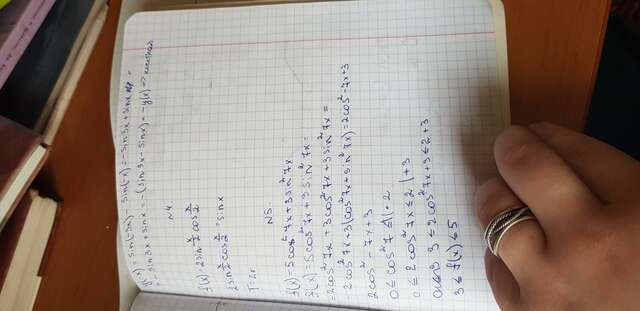 y(-x) = sin(-3x) - sin(-x) = -sin3x + sinx =
= -sin3x + sinx = -(sin3x - sinx) = -y(x) => нечетная
N4
f(x) = 2sin x/2 cos x/2
2sin x/2 cos x/2 = sinx
T = 2π
N5.
f(x) = 5cos²7x + 3sin²7x
f(x) = 5cos²7x + 3sin²7x =
= 2cos²7x + 3cos²7x + 3sin²7x =
2cos²7x + 3(cos²7x + sin²7x) = 2cos²-7x+3
2cos² - 7x + 3
0 ≤ cos²7 ≤ 1 | · 2
0 ≤ 2cos²7x ≤ 2 | +3
3 ≤ 2cos²7x + 3 ≤ 2 + 3
3 ≤ f(x) ≤ 5